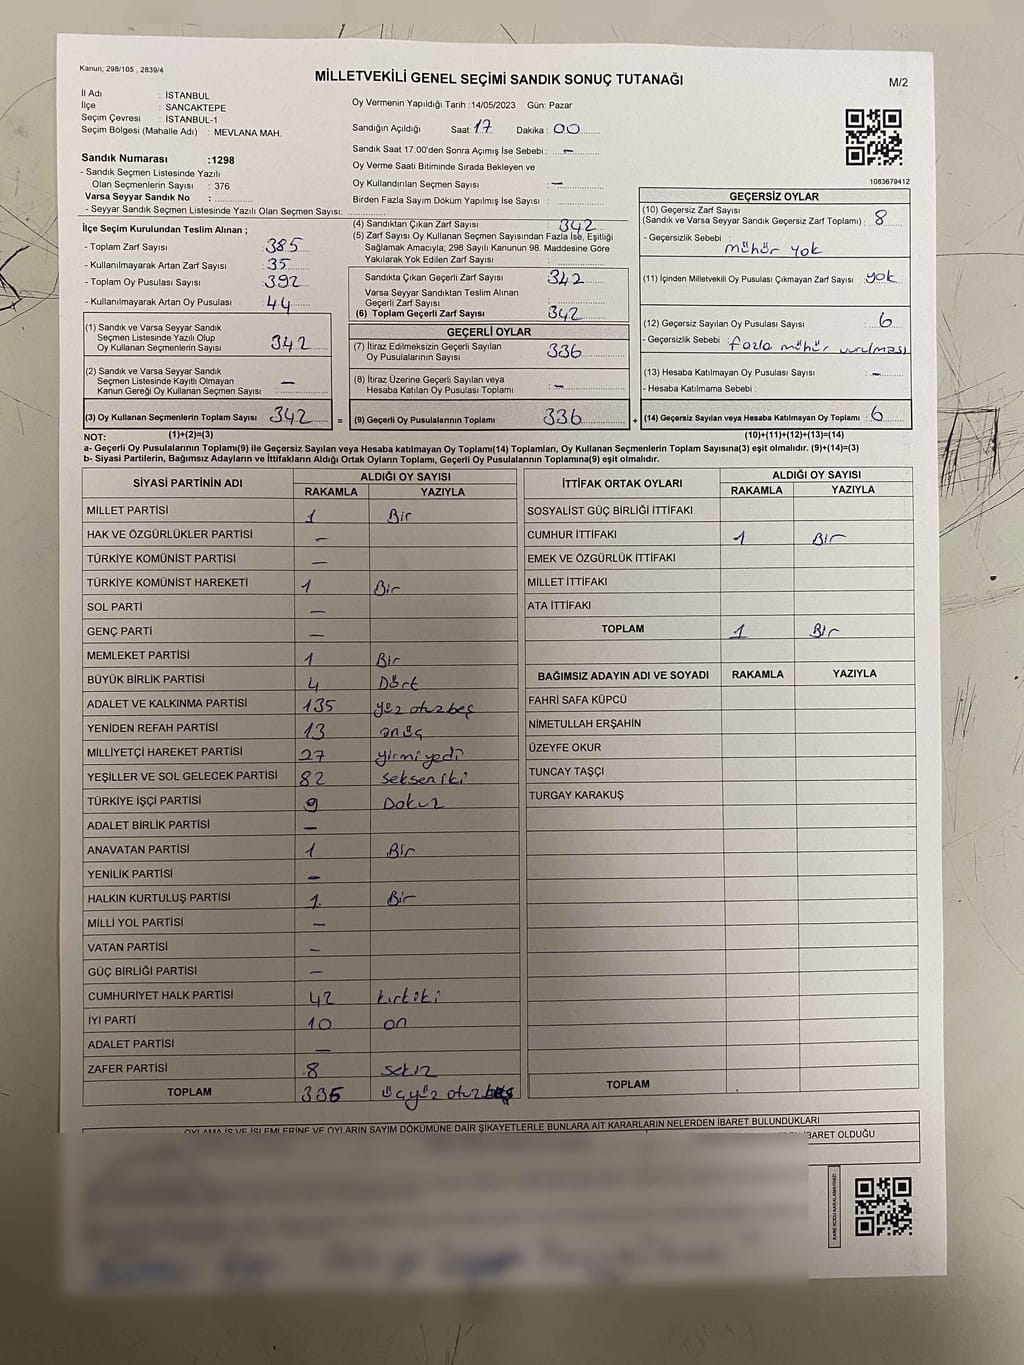 Kanun; 298/105 , 2839/4
MİLLETVEKİLİ GENEL SEÇİMİ SANDIK SONUÇ TUTANAĞI
M/2
İl Adı : İSTANBUL
İlçe : SANCAKTEPE
Seçim Çevresi : İSTANBUL-1
Seçim Bölgesi (Mahalle Adı) : MEVLANA MAH.
Sandık Numarası :1298
- Sandık Seçmen Listesinde Yazılı
Olan Seçmenlerin Sayısı : 376
Varsa Seyyar Sandık No :
- Seyyar Sandık Seçmen Listesinde Yazılı Olan Seçmen Sayısı:
Oy Vermenin Yapıldığı Tarih :14/05/2023 Gün: Pazar
Sandığın Açıldığı Saat: 17 Dakika : 00
Sandık Saat 17:00'den Sonra Açımış İse Sebebi : —
Oy Verme Saati Bitiminde Sırada Bekleyen ve
Oy Kullandırılan Seçmen Sayısı : —
Birden Fazla Sayım Döküm Yapılmış İse Sayısı :
1083679412
İlçe Seçim Kurulundan Teslim Alınan ;
- Toplam Zarf Sayısı : 385
- Kullanılmayarak Artan Zarf Sayısı : 35
- Toplam Oy Pusulası Sayısı : 392
- Kullanılmayarak Artan Oy Pusulası : 44
(1) Sandık ve Varsa Seyyar Sandık
Seçmen Listesinde Yazılı Olup
Oy Kullanan Seçmenlerin Sayısı : 342
(2) Sandık ve Varsa Seyyar Sandık
Seçmen Listesinde Kayıtlı Olmayan
Kanun Gereği Oy Kullanan Seçmen Sayısı : —
(3) Oy Kullanan Seçmenlerin Toplam Sayısı : 342
(1)+(2)=(3)
(4) Sandıktan Çıkan Zarf Sayısı : 342
(5) Zarf Sayısı Oy Kullanan Seçmen Sayısından Fazla İse, Eşitliği
Sağlamak Amacıyla; 298 Sayılı Kanunun 98. Maddesine Göre
Yakılarak Yok Edilen Zarf Sayısı :
Sandıkta Çıkan Geçerli Zarf Sayısı : 342
Varsa Seyyar Sandıktan Teslim Alınan
Geçerli Zarf Sayısı :
(6) Toplam Geçerli Zarf Sayısı : 342
GEÇERLİ OYLAR
(7) İtiraz Edilmeksizin Geçerli Sayılan
Oy Pusulalarının Sayısı : 336
(8) İtiraz Üzerine Geçerli Sayılan veya
Hesaba Katılan Oy Pusulası Toplamı : —
= (9) Geçerli Oy Pusulalarının Toplamı : 336
GEÇERSİZ OYLAR
(10) Geçersiz Zarf Sayısı
(Sandık ve Varsa Seyyar Sandık Geçersiz Zarf Toplamı) : 8
- Geçersizlik Sebebi :
mühür yok
(11) İçinden Milletvekili Oy Pusulası Çıkmayan Zarf Sayısı : yok
(12) Geçersiz Sayılan Oy Pusulası Sayısı : 6
- Geçersizlik Sebebi : fazla mühür vurulması
(13) Hesaba Katılmayan Oy Pusulası Sayısı : —
- Hesaba Katılmama Sebebi :
+ (14) Geçersiz Sayılan veya Hesaba Katılmayan Oy Toplamı : 6
(10)+(11)+(12)+(13)=(14)
NOT:
a- Geçerli Oy Pusulalarının Toplamı(9) ile Geçersiz Sayılan veya Hesaba katılmayan Oy Toplamı(14) Toplamları, Oy Kullanan Seçmenlerin Toplam Sayısına(3) eşit olmalıdır. (9)+(14)=(3)
b- Siyasi Partilerin, Bağımsız Adayların ve İttifakların Aldığı Ortak Oyların Toplamı, Geçerli Oy Pusulalarının Toplamına(9) eşit olmalıdır.
SİYASİ PARTİNİN ADI ALDIĞI OY SAYISI
RAKAMLA YAZIYLA
MİLLET PARTİSİ 1 Bir
HAK VE ÖZGÜRLÜKLER PARTİSİ —
TÜRKİYE KOMÜNİST PARTİSİ —
TÜRKİYE KOMÜNİST HAREKETİ 1 Bir
SOL PARTİ —
GENÇ PARTİ —
MEMLEKET PARTİSİ 1 Bir
BÜYÜK BİRLİK PARTİSİ 4 Dört
ADALET VE KALKINMA PARTİSİ 135 yüz otuzbeş
YENİDEN REFAH PARTİSİ 13 onüç
MİLLİYETÇİ HAREKET PARTİSİ 27 yirmiyedi
YEŞİLLER VE SOL GELECEK PARTİSİ 82 Sekseniki
TÜRKİYE İŞÇİ PARTİSİ 9 Dokuz
ADALET BİRLİK PARTİSİ —
ANAVATAN PARTİSİ 1 Bir
YENİLİK PARTİSİ —
HALKIN KURTULUŞ PARTİSİ 1 Bir
MİLLİ YOL PARTİSİ —
VATAN PARTİSİ —
GÜÇ BİRLİĞİ PARTİSİ —
CUMHURİYET HALK PARTİSİ 42 kırkiki
İYİ PARTİ 10 on
ADALET PARTİSİ —
ZAFER PARTİSİ 8 sekiz
TOPLAM 335 üçyüz otuzbeş
İTTİFAK ORTAK OYLARI ALDIĞI OY SAYISI
RAKAMLA YAZIYLA
SOSYALİST GÜÇ BİRLİĞİ İTTİFAKI
CUMHUR İTTİFAKI 1 Bir
EMEK VE ÖZGÜRLÜK İTTİFAKI
MİLLET İTTİFAKI
ATA İTTİFAKI
TOPLAM 1 Bir
BAĞIMSIZ ADAYIN ADI VE SOYADI RAKAMLA YAZIYLA
FAHRİ SAFA KÜPCÜ
NİMETULLAH ERŞAHİN
ÜZEYFE OKUR
TUNCAY TAŞÇI
TURGAY KARAKUŞ
TOPLAM
OYLAMA İŞ VE İŞLEMLERİNE VE OYLARIN SAYIM DÖKÜMÜNE DAİR ŞİKAYETLERLE BUNLARA AİT KARARLARIN NELERDEN İBARET BULUNDUKLARI
İBARET OLDUĞU
KARE KODU KARALAMAYINIZ!